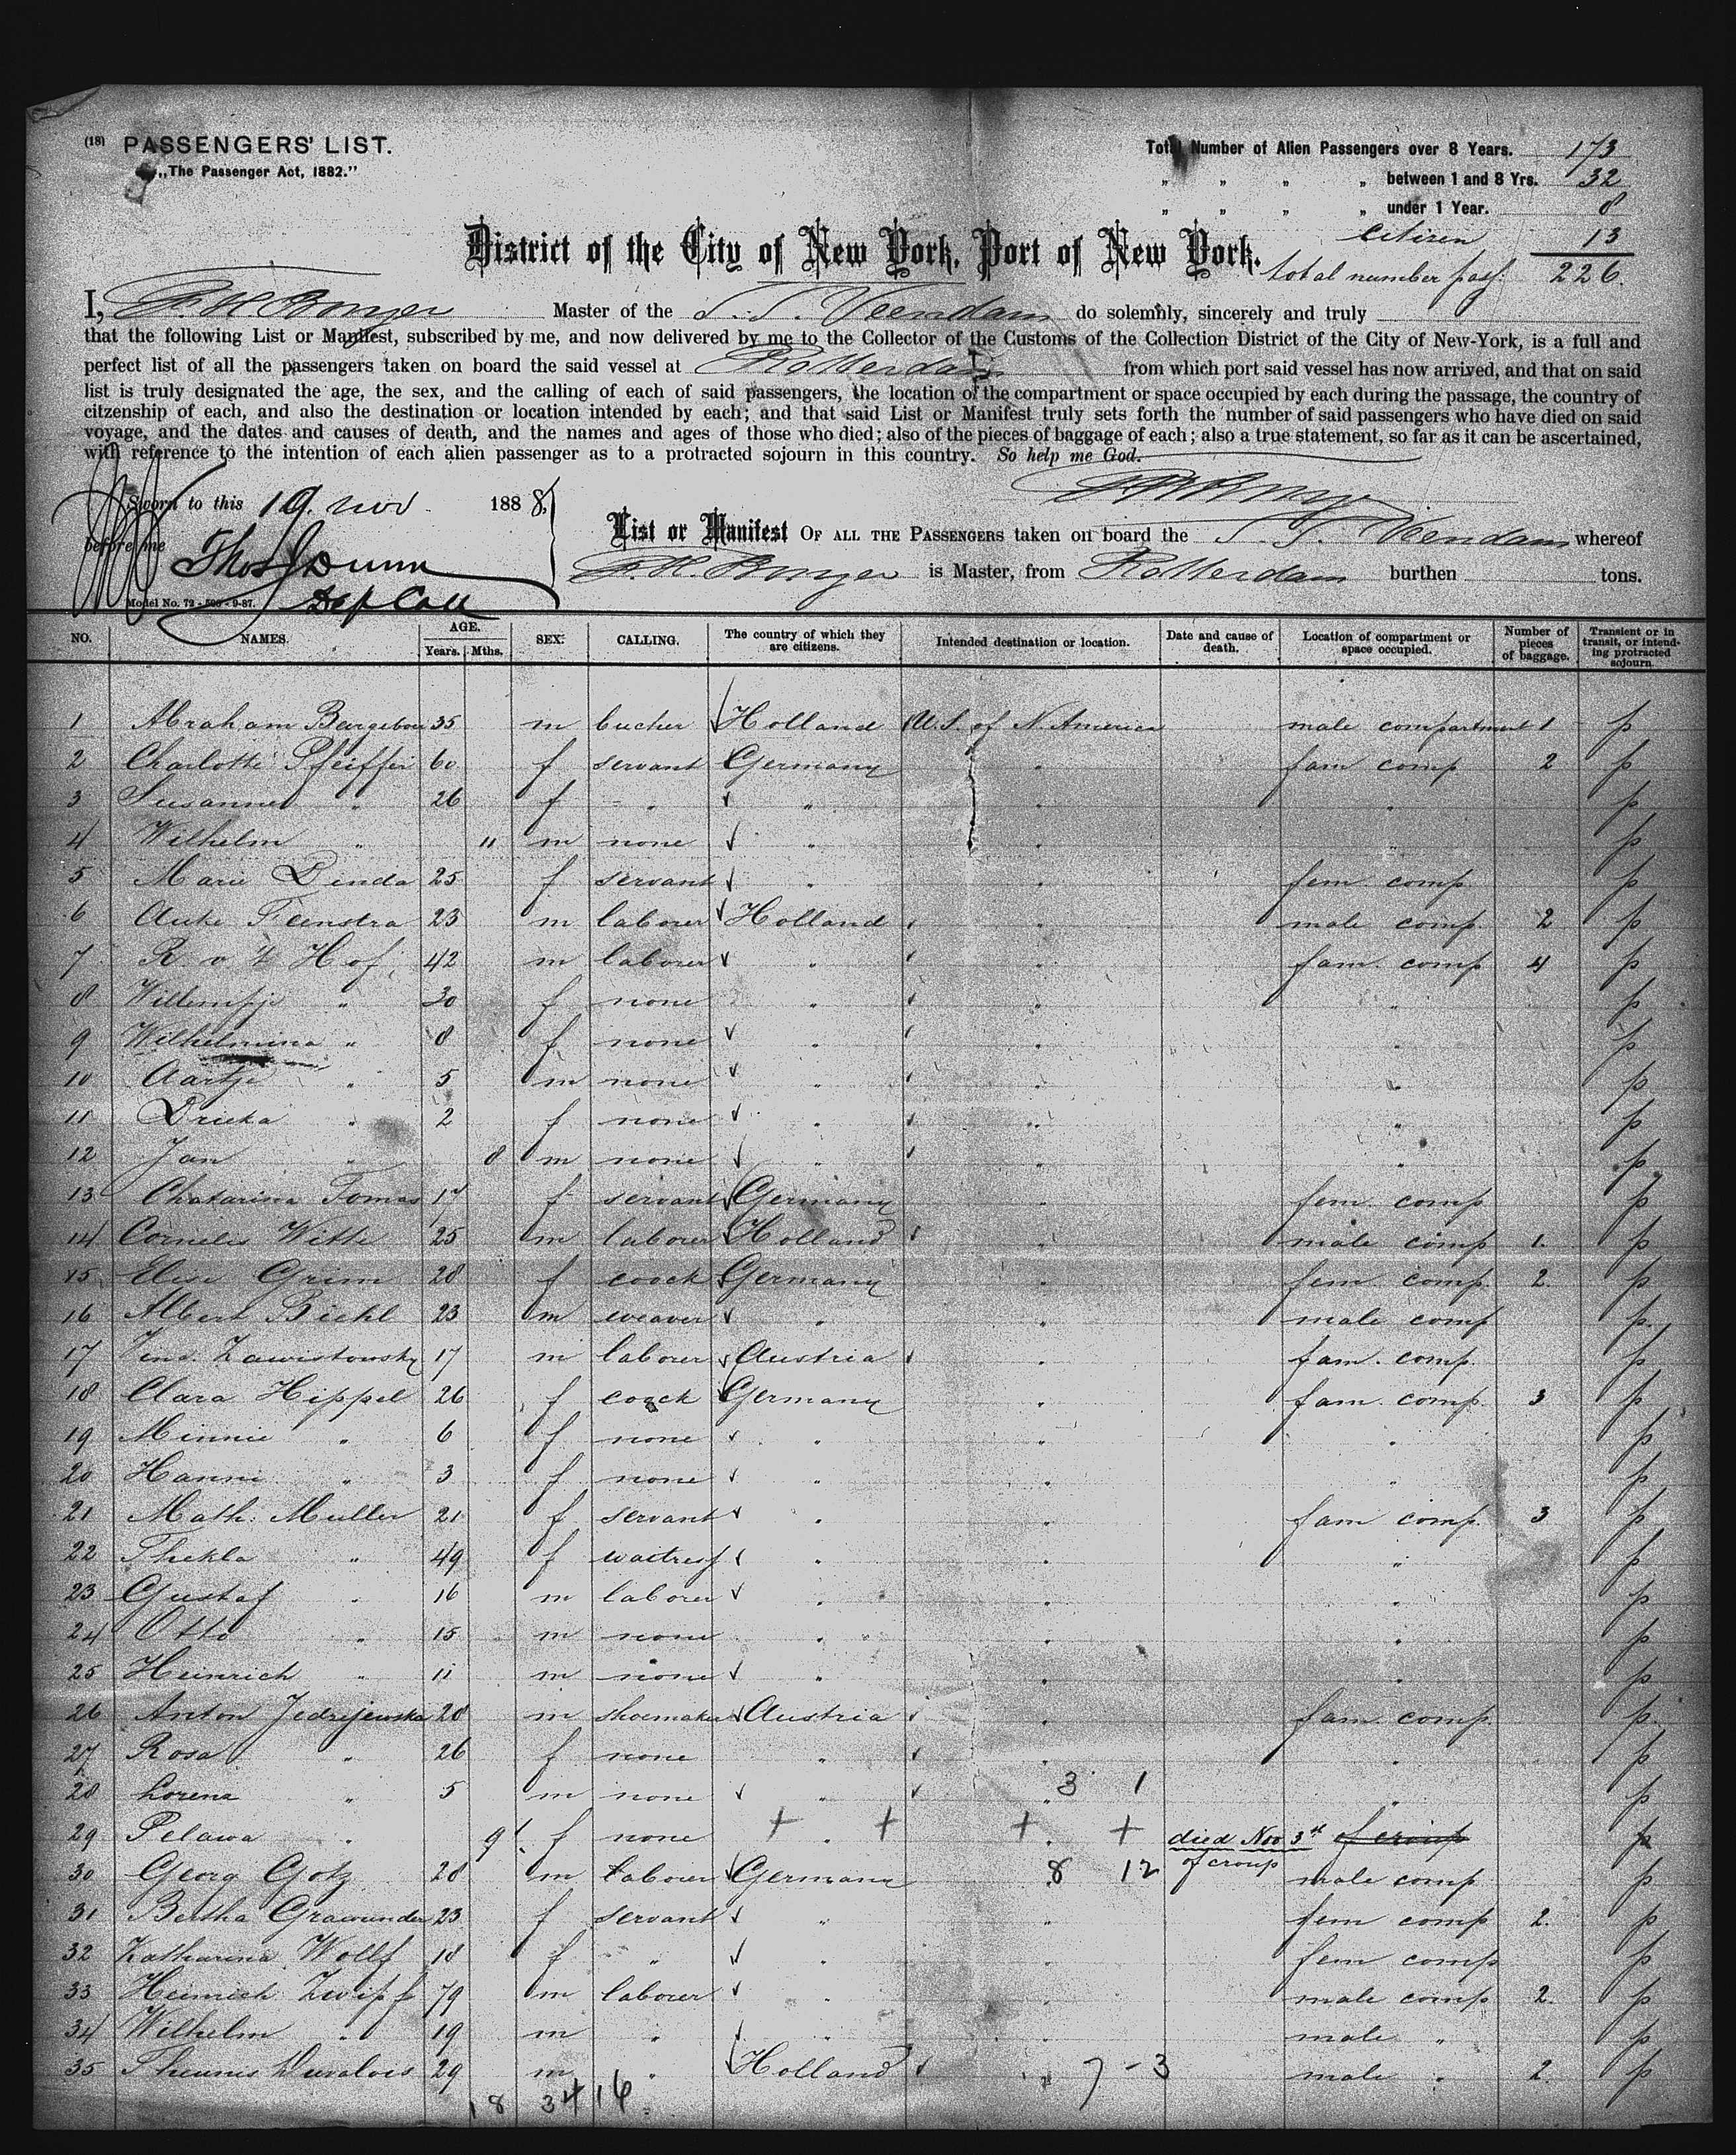 (18) PASSENGERS' LIST.
„The Passenger Act, 1882."
Total Number of Alien Passengers over 8 Years. 173
„ „ „ „ between 1 and 8 Yrs. 32
„ „ „ „ under 1 Year. 8
Citizen 13
total number pass. 226.
District of the City of New York, Port of New York.
I, Master of the S. S. Veendam do solemnly, sincerely and truly
that the following List or Manifest, subscribed by me, and now delivered by me to the Collector of the Customs of the Collection District of the City of New-York, is a full and
perfect list of all the passengers taken on board the said vessel at Rotterdam from which port said vessel has now arrived, and that on said
list is truly designated the age, the sex, and the calling of each of said passengers, the location of the compartment or space occupied by each during the passage, the country of
citzenship of each, and also the destination or location intended by each; and that said List or Manifest truly sets forth the number of said passengers who have died on said
voyage, and the dates and causes of death, and the names and ages of those who died; also of the pieces of baggage of each; also a true statement, so far as it can be ascertained,
with reference to the intention of each alien passenger as to a protracted sojourn in this country. So help me God.
Sworn to this 19. nov. 1888.
before me Thos J Dunn
Dep Coll
Model No. 72 - 500 - 9-87.
List or Manifest OF ALL THE PASSENGERS taken on board the S. S. Veendam whereof
is Master, from Rotterdam burthen tons.
NO. NAMES. AGE. Years. Mths. SEX. CALLING. The country of which they are citizens. Intended destination or location. Date and cause of death. Location of compartment or space occupied. Number of pieces of baggage. Transient or in transit, or intending protracted sojourn.
1 Abraham 35 m bucher Holland U.S. of N. America male compartment 1 p
2 Charlotte Pfeiffer 60 f servant Germany " fam comp 2 p
3 Susanne " 26 f " " " " p
4 Wilhelm " 11 m none " " " p
5 Marie Dinda 25 f servant " " fem. comp. p
6 Auke Feenstra 23 m laborer Holland " male comp. 2 p
7 R. v. 't Hof 42 m laborer " " fam. comp 4 p
8 Willempje " 30 f none " " " p
9 Wilhelmina " 8 f none " " " p
10 Aartje " 5 m none " " " p
11 Dricka " 2 f none " " " p
12 Jan " 8 m none " " " p
13 Chatarina Tomas 17 f servant Germany " fem. comp p
14 Cornelis Witte 25 m laborer Holland " male comp 1. p
15 Elise Grim 28 f coock Germany " fem comp. 2. p
16 Albert Biehl 23 m weaver " " male comp p.
17 Zawistowsky 17 m laborer Austria " fam. comp. p
18 Clara Hippel 26 f coock Germany " fam. comp. 3 p
19 Minnie " 6 f none " " " p
20 Hanni " 3 f none " " " p
21 Math. Muller 21 f servant " " fam comp. 3 p
22 Thekla " 49 f waitress " " " p
23 Gustaf " 16 m laborer " " " p
24 Otto " 15 m none " " " p
25 Heinrich " 11 m none " " " p
26 Anton Jedrejewska 28 m shoemaker Austria " fam. comp. p.
27 Rosa " 26 f none " " " p
28 Lorena " 5 m none " " 3 1 " p
29 Pelawa " 9 f none + " + + " + died Nov 3th of croup p
of croup
30 Georg Gotz 28 m laborer Germany " 8 12 male comp p
31 Bertha Grawunder 23 f servant " " fem comp 2. p
32 Katharina Wollf 18 f " " " fem comp p
33 Heinrich Zwipf 79 m laborer " " male comp 2. p
34 Wilhelm " 19 m " " " male " p
35 Theunis 29 m " Holland " 7 - 3 male " 2. p
18 34 16